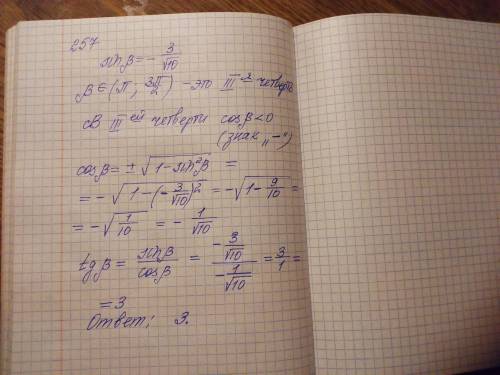 257
sin β = - 3/√10
β ∈ (π; 3π/2) - это III я четверть
В III ей четверти cos β < 0
(знак „-“)
cos β = ± √(1 - sin²β) =
= - √(1 - (- 3/√10)²) = - √(1 - 9/10) =
= - √(1/10) = - 1/√10
tg β = sin β / cos β = (- 3/√10) / (- 1/√10) = 3/1 =
= 3
Ответ: 3.